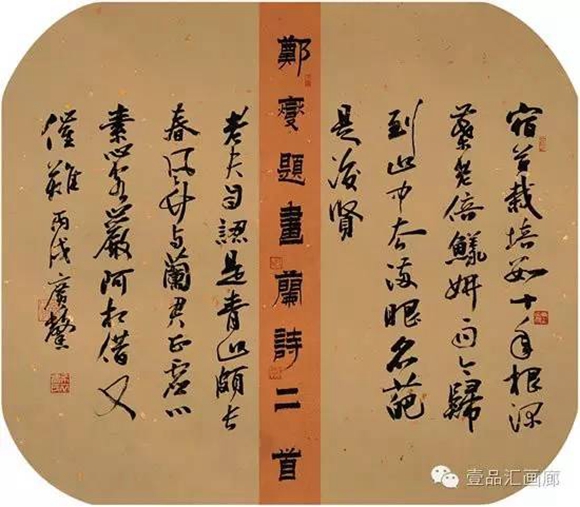 宿草栽培數十年根深
葉老倍鱻妍而今歸
到山中去滿眼名葩
是後賢
鄭燮題畫蘭詩二首
老夫自認是青山頗長
春風竹與蘭君正虛心
素心客巖阿相借又
難丙戌廣
壹品汇画廊